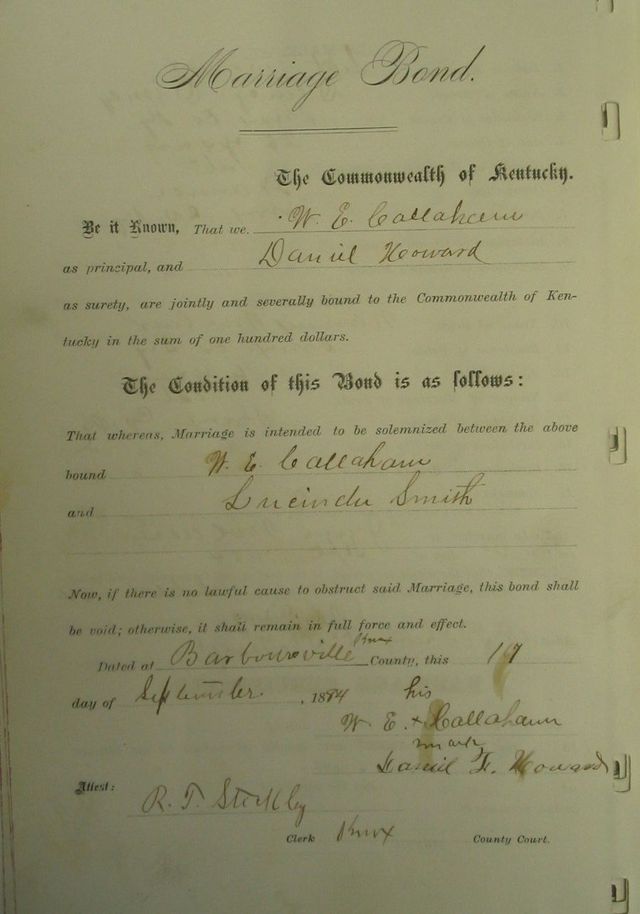 Marriage Bond.
The Commonwealth of Kentucky.
Be it Known, That we. W. E. Callahann
as principal, and Daniel Howard
as surety, are jointly and severally bound to the Commonwealth of Ken-
tucky in the sum of one hundred dollars.
The Condition of this Bond is as follows:
That whereas, Marriage is intended to be solemnized between the above
bound W. E. Callahann
and Lucinda Smith
Now, if there is no lawful cause to obstruct said Marriage, this bond shall
be void; otherwise, it shall remain in full force and effect.
Dated at Barbourville Knox County, this 17
day of September , 1884
his
W. E. x Callahann
mark
Daniel F. Howard
Attest:
R. T. Stickley
Clerk Knox County Court.